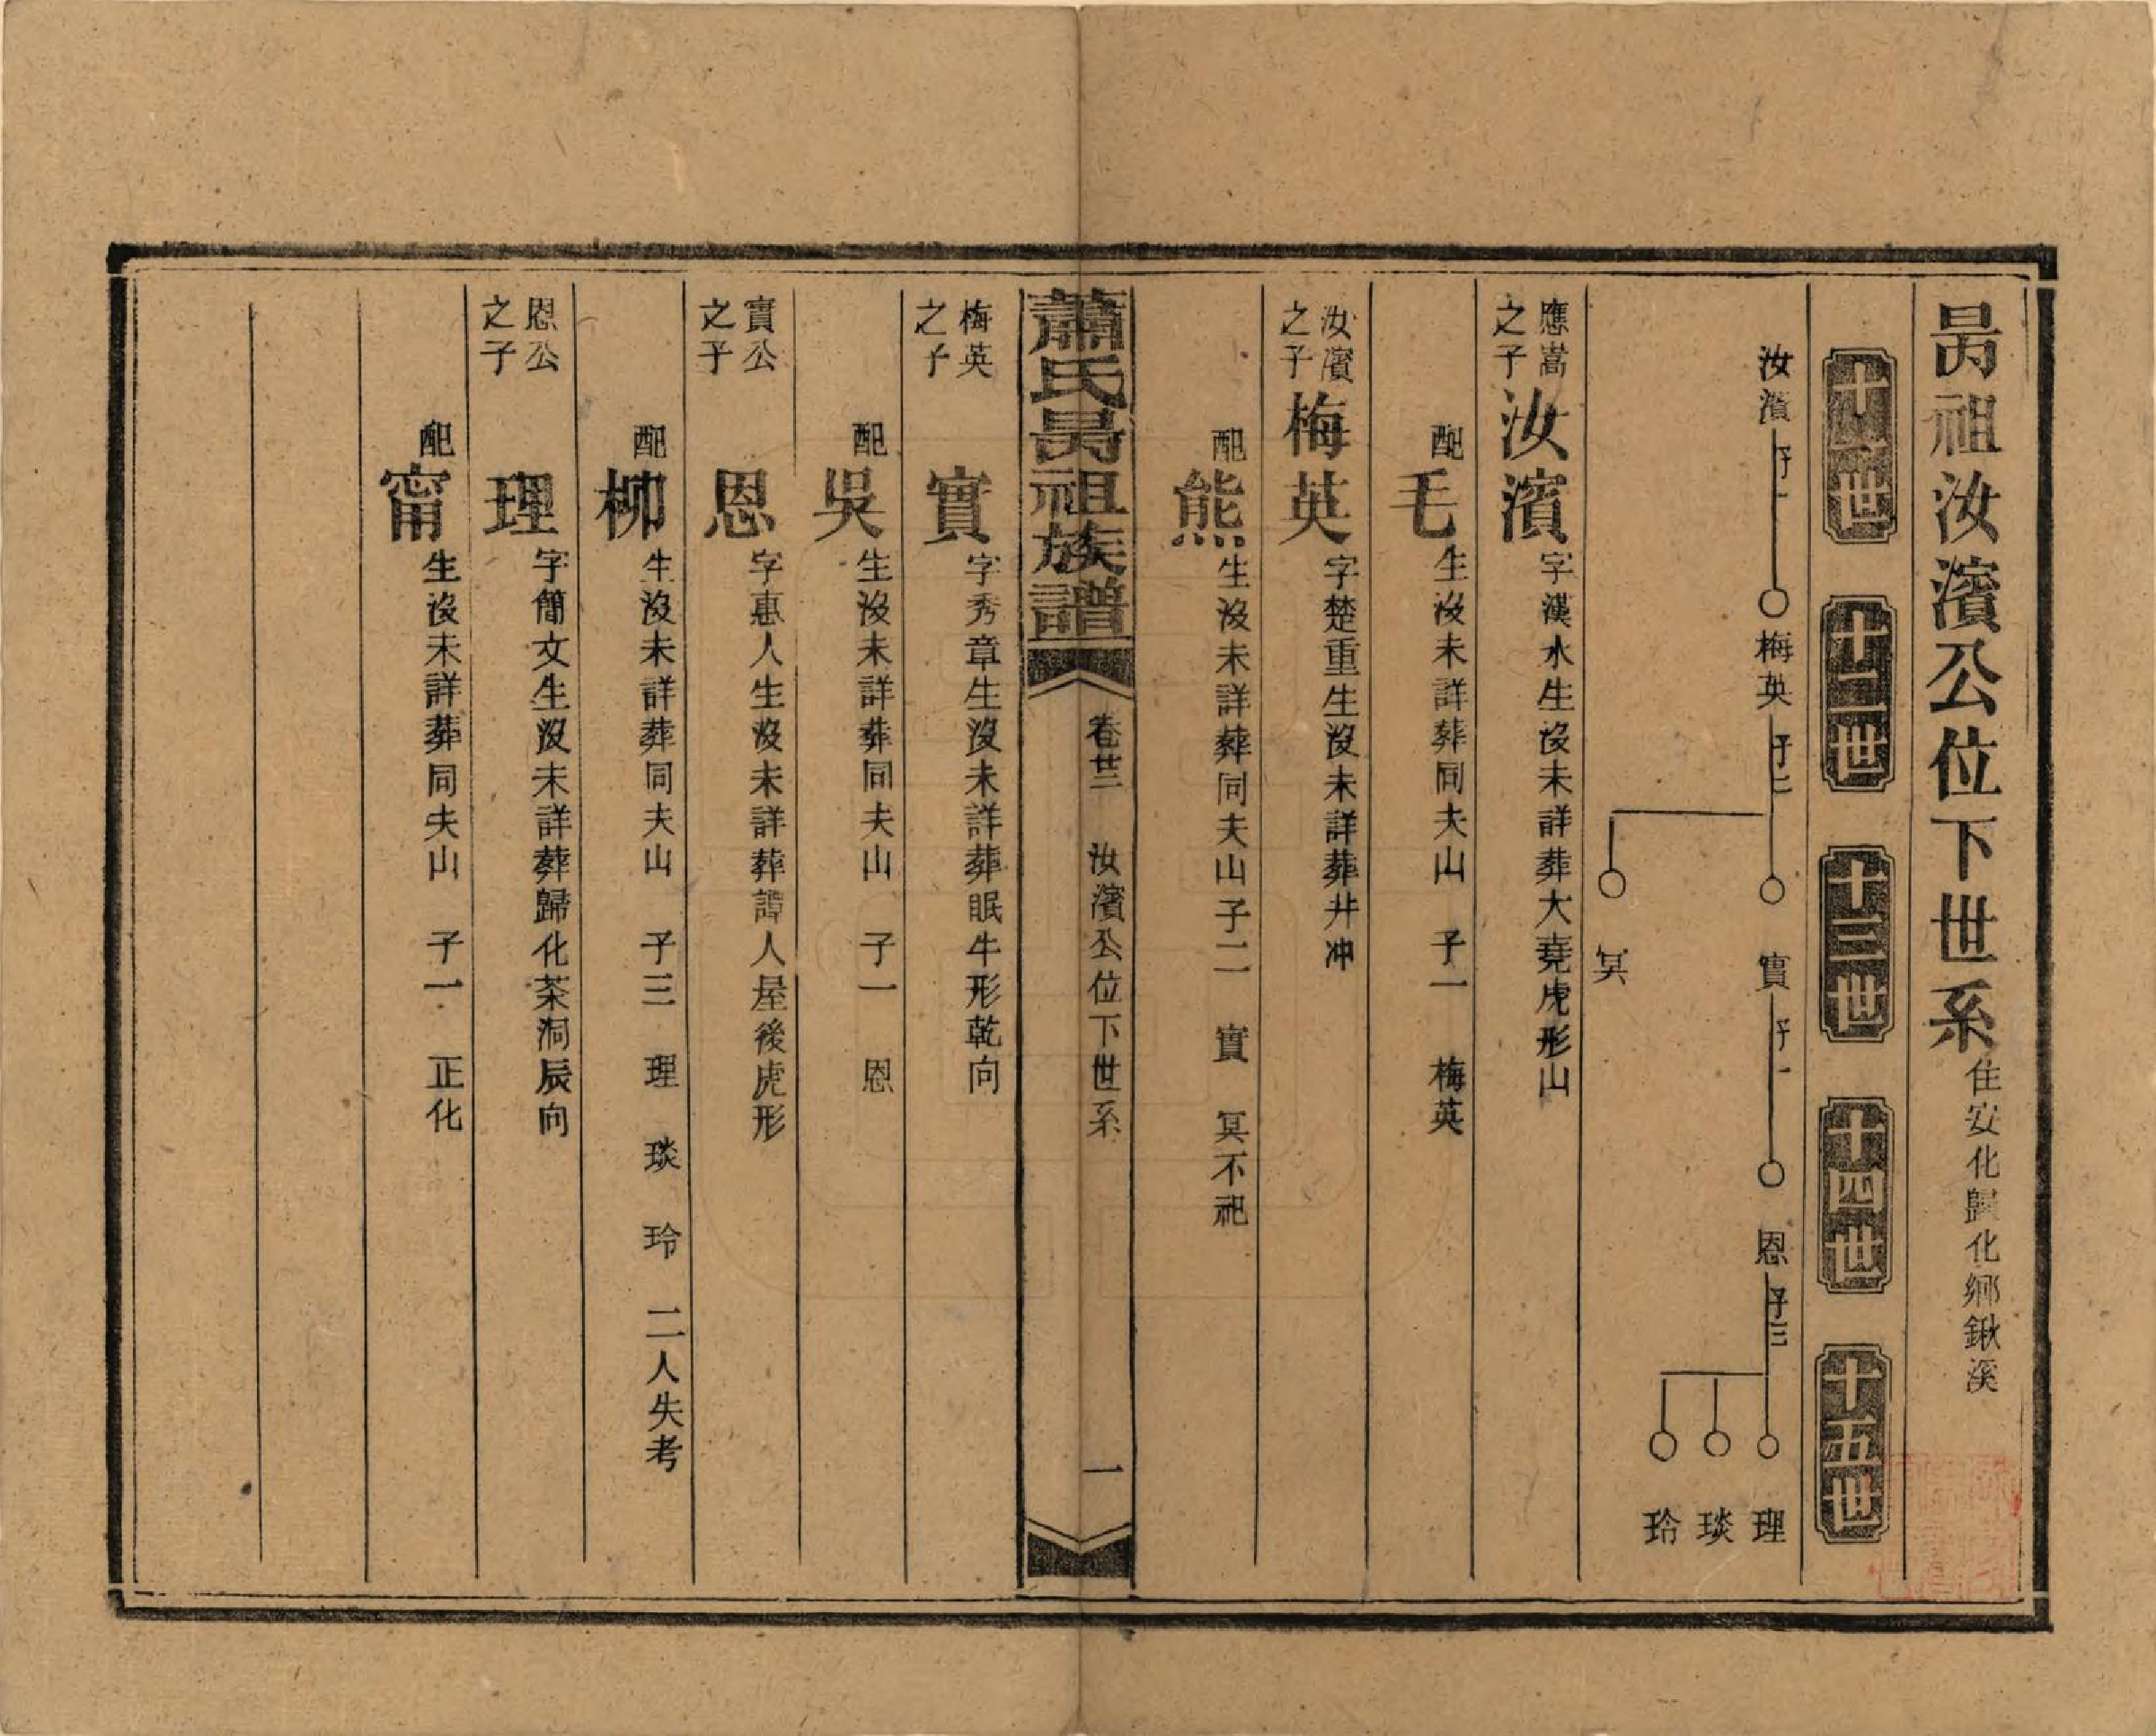 昺祖汝濱公位下世系 住安化歸化鄉鍬溪
十一世 十二世 十三世 十四世 十五世
汝濱 子一 梅英 子二 實 子一 恩 子三 理
琰
玲
冥
應嵩之子 汝濱 字漢水生沒未詳葬大堯虎形山
配毛 生沒未詳葬同夫山 子一 梅英
汝濱之子 梅英 字楚重生沒未詳葬井冲
配熊 生沒未詳葬同夫山子二 實 冥不祀
蕭氏昺祖族譜 卷廿三 汝濱公位下世系 一
梅英之子 實 字秀章生沒未詳葬眠牛形乾向
配吳 生沒未詳葬同夫山 子一 恩
實公之子 恩 字惠人生沒未詳葬譚人屋後虎形
配柳 生沒未詳葬同夫山 子三 理 琰 玲 二人失考
恩公之子 理 字簡文生沒未詳葬歸化茶洞辰向
配甯 生沒未詳葬同夫山 子一 正化